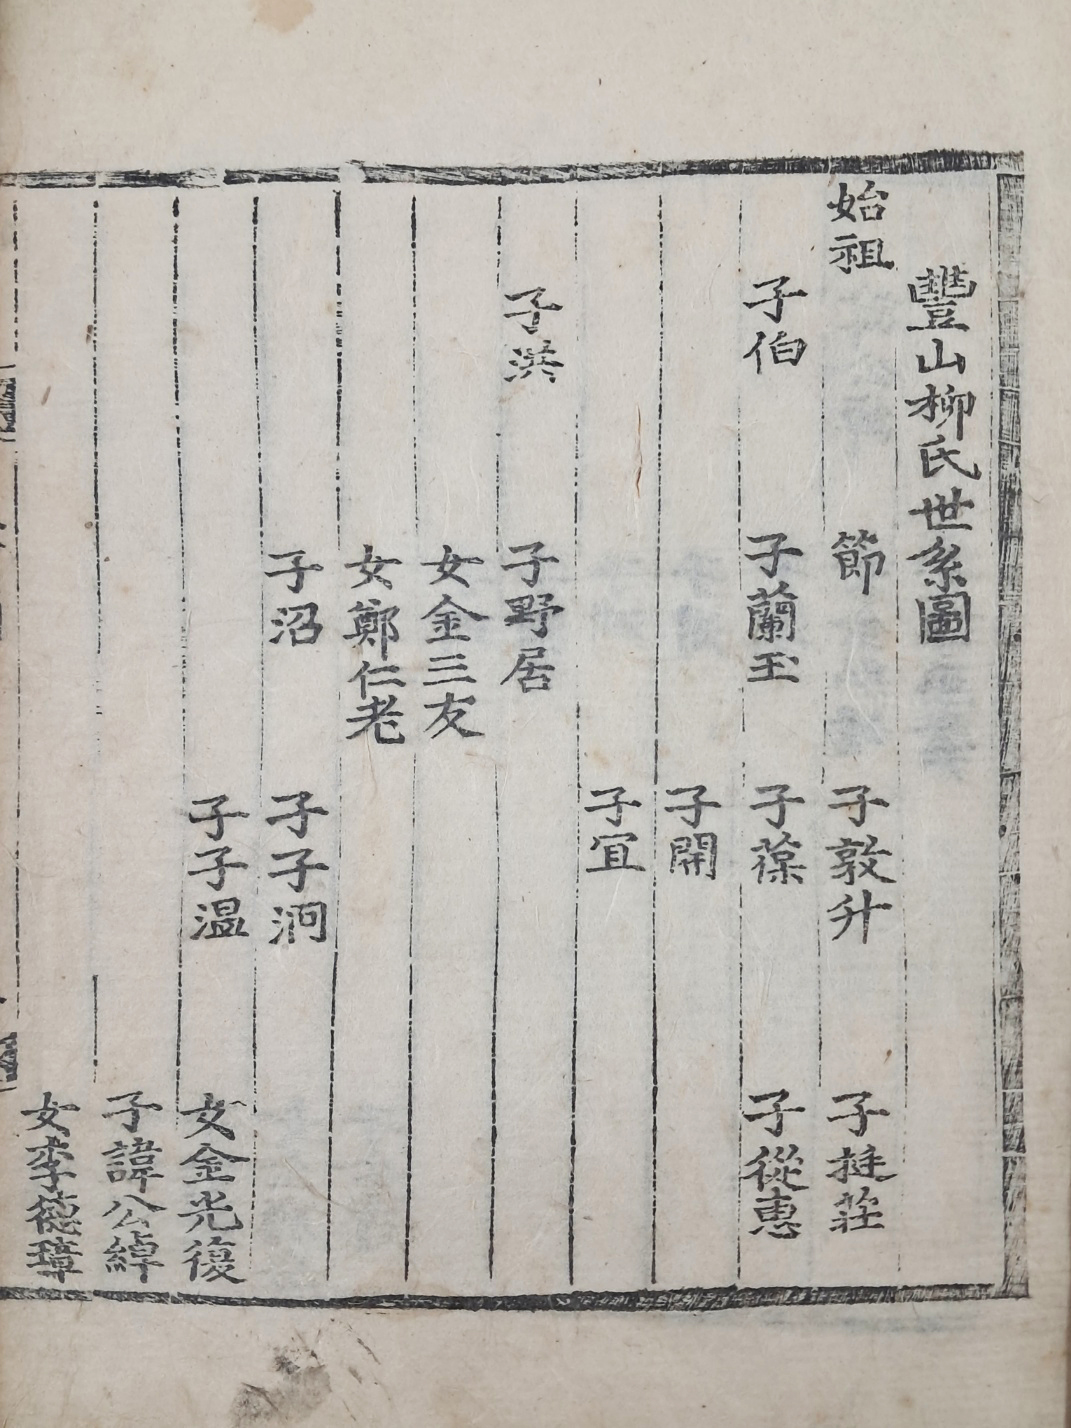 豐山柳氏世系圖
始祖 節 子敦升 子挺莊
子伯 子蘭玉 子葆 子從惠
子開
子宜
子洪 子野居
女金三友
女鄭仁老
子沼 子子泂
子子溫 女金光復
子諱公綽
女李德璋